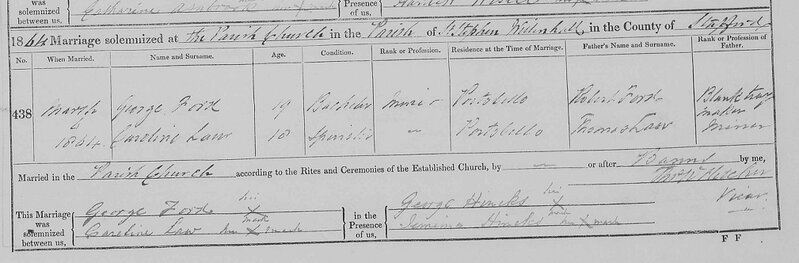 was solemnized between us,
Presence of us,
1864 Marriage solemnized at the Parish Church in the Parish of St Stephen Willenhall in the County of Stafford
No. When Married. Name and Surname. Age. Condition. Rank or Profession. Residence at the Time of Marriage. Father's Name and Surname. Rank or Profession of Father.
438 March George Ford 19 Bachelor Miner Portobello Robert Ford Blank tray maker
1864. Caroline Law 18 Spinster " Portobello Thomas Law Miner
Married in the Parish Church according to the Rites and Ceremonies of the Established Church, by — or after Banns by me,
Fletcher
Vicar
This Marriage was solemnized between us, George Ford his X mark
Caroline Law her X mark
in the Presence of us, George Hincks his X mark
Jemima Hincks her X mark
F F